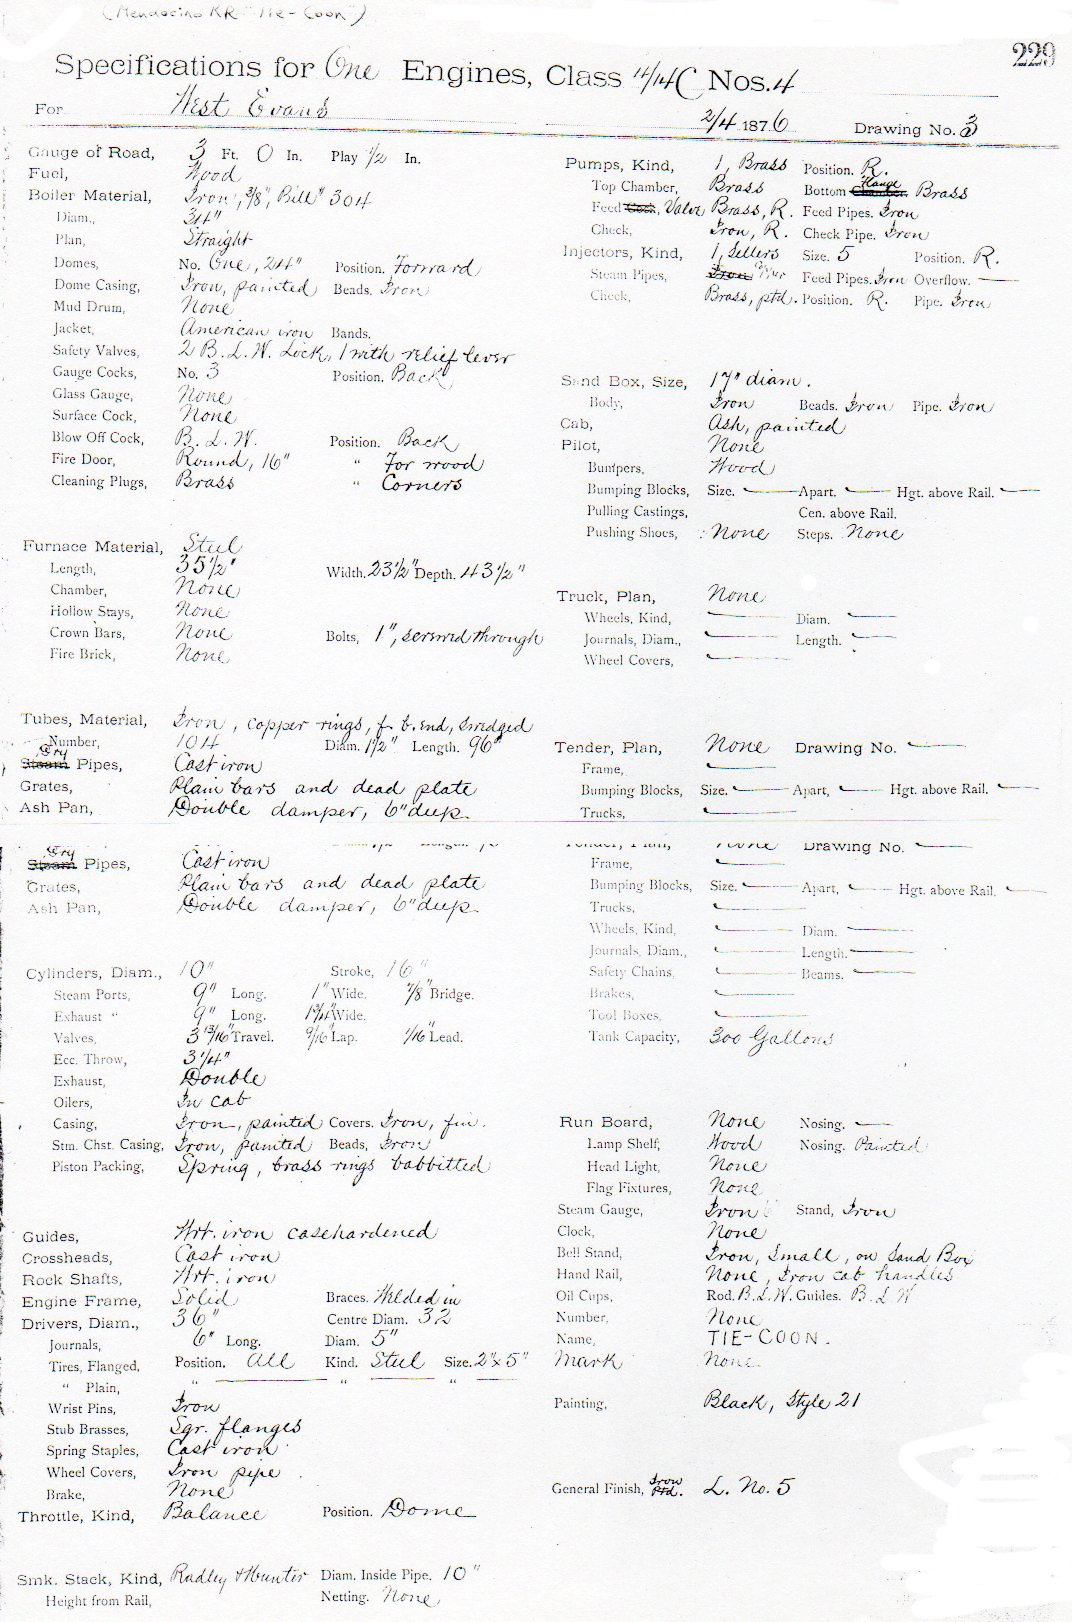 (Mendocino RR "Tie-Coon")
229
Specifications for One Engines, Class 11/14 C Nos. 4
For West Evans 2/4 1876 Drawing No. 3
Gauge of Road, 3 Ft. 0 In. Play 1/2 In.
Fuel, Wood
Boiler Material, Iron, 3/8", Bill" 304
Diam., 34"
Plan, Straight
Domes, No. One, 24" Position. Forward
Dome Casing, Iron, painted Beads. Iron
Mud Drum, None
Jacket, American iron Bands.
Safety Valves, 2 B.L.W. Lock, 1 with relief lever
Gauge Cocks, No. 3 Position. Back
Glass Gauge, None
Surface Cock, None
Blow Off Cock, B.L.W. Position. Back
Fire Door, Round, 16" " For wood
Cleaning Plugs, Brass " Corners
Furnace Material, Steel
Length, 35 1/2" Width. 23 1/2" Depth. 43 1/2"
Chamber, None
Hollow Stays, None
Crown Bars, None Bolts, 1", screwed through
Fire Brick, None
Tubes, Material, Iron, copper rings, f. b. end, swedged
Number, 104 Diam. 1 1/2" Length. 96"
Dry
Steam Pipes, Cast iron
Grates, Plain bars and dead plate
Ash Pan, Double damper, 6" deep.
Dry
Steam Pipes, Cast iron
Grates, Plain bars and dead plate
Ash Pan, Double damper, 6" deep.
Cylinders, Diam., 10" Stroke, 16"
Steam Ports, 9" Long. 1" Wide. 7/8" Bridge.
Exhaust " 9" Long. 1 3/4" Wide.
Valves, 3 13/16" Travel. 9/16" Lap. 1/16" Lead.
Ecc. Throw, 3 1/4"
Exhaust, Double
Oilers, In cab
Casing, Iron, painted Covers. Iron, fin.
Stm. Chst. Casing, Iron, painted Beads, Iron
Piston Packing, Spring, brass rings babbitted
Guides, Wrt. iron casehardened
Crossheads, Cast iron
Rock Shafts, Wrt. iron
Engine Frame, Solid Braces. Welded in
Drivers, Diam., 36" Centre Diam. 32
Journals, 6" Long. Diam. 5"
Tires, Flanged, Position. All Kind. Steel Size. 2" x 5"
" Plain, " " "
Wrist Pins, Iron
Stub Brasses, Sqr. flanges
Spring Staples, Cast iron
Wheel Covers, Iron pipe
Brake, None
Throttle, Kind, Balance Position. Dome
Smk. Stack, Kind, Radley & Hunter Diam. Inside Pipe. 10"
Height from Rail, Netting. None
Pumps, Kind, 1, Brass Position. R.
Top Chamber, Brass Bottom Chamber. Flange Brass
Feed Cock, Valve Brass, R. Feed Pipes. Iron
Check, Iron, R. Check Pipe. Iron
Injectors, Kind, 1, Sellers Size. 5 Position. R.
Steam Pipes, Iron Feed Pipes. Iron Overflow. —
Check, Brass, ptd. Position. R. Pipe. Iron
Sand Box, Size, 17" diam.
Body, Iron Beads. Iron Pipe. Iron
Cab, Ash, painted
Pilot, None
Bumpers, Wood
Bumping Blocks, Size. — Apart. — Hgt. above Rail. —
Pulling Castings, Cen. above Rail.
Pushing Shoes, None Steps. None
Truck, Plan, None
Wheels, Kind, — Diam. —
Journals, Diam., — Length. —
Wheel Covers, —
Tender, Plan, None Drawing No. —
Frame, —
Bumping Blocks, Size. — Apart, — Hgt. above Rail. —
Trucks, —
Tender, Plan, None Drawing No. —
Frame, —
Bumping Blocks, Size. — Apart, — Hgt. above Rail. —
Trucks, —
Wheels, Kind, — Diam. —
Journals, Diam., — Length. —
Safety Chains, — Beams. —
Brakes, —
Tool Boxes, —
Tank Capacity, 300 Gallons
Run Board, None Nosing. —
Lamp Shelf, Wood Nosing. Painted
Head Light, None
Flag Fixtures, None
Steam Gauge, Iron Stand, Iron
Clock, None
Bell Stand, Iron, Small, on Sand Box
Hand Rail, None, Iron cab handles
Oil Cups, Rod. B.L.W. Guides. B.L.W
Number, None
Name, TIE-COON.
Mark None
Painting, Black, Style 21
General Finish, Iron Ptd. L. No. 5